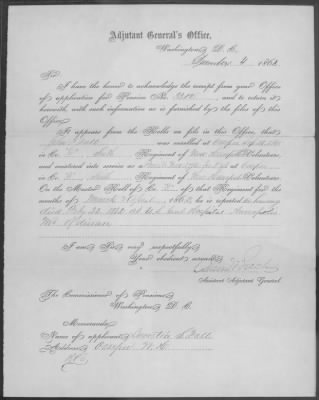 Adjutant General's Office,
Washington, D. C.
December 4, 1862
Sir:
I have the honor to acknowledge the receipt from your Office
of application for Pension No. and to return it
herewith, with such information as is furnished by the files of this
Office.
It appears from the Rolls on file in this Office, that
John was enrolled at
in Co. Sixth Regiment of New Hampshire Volunteers,
and mustered into service as a at
in Co. Sixth Regiment of New Hampshire Volunteers.
On the Muster Roll of Co. of that Regiment for the
months of March & April 1862, he is reported to having
died Feby 22, 1862 at U.S. Genl Hospital Annapolis
Md of disease
I am, Sir, very respectfully,
Your obedient servant,
Assistant Adjutant General.
The Commissioner of Pensions,
Washington, D. C.
Memoranda:
Name of applicant,
Address, N. H.